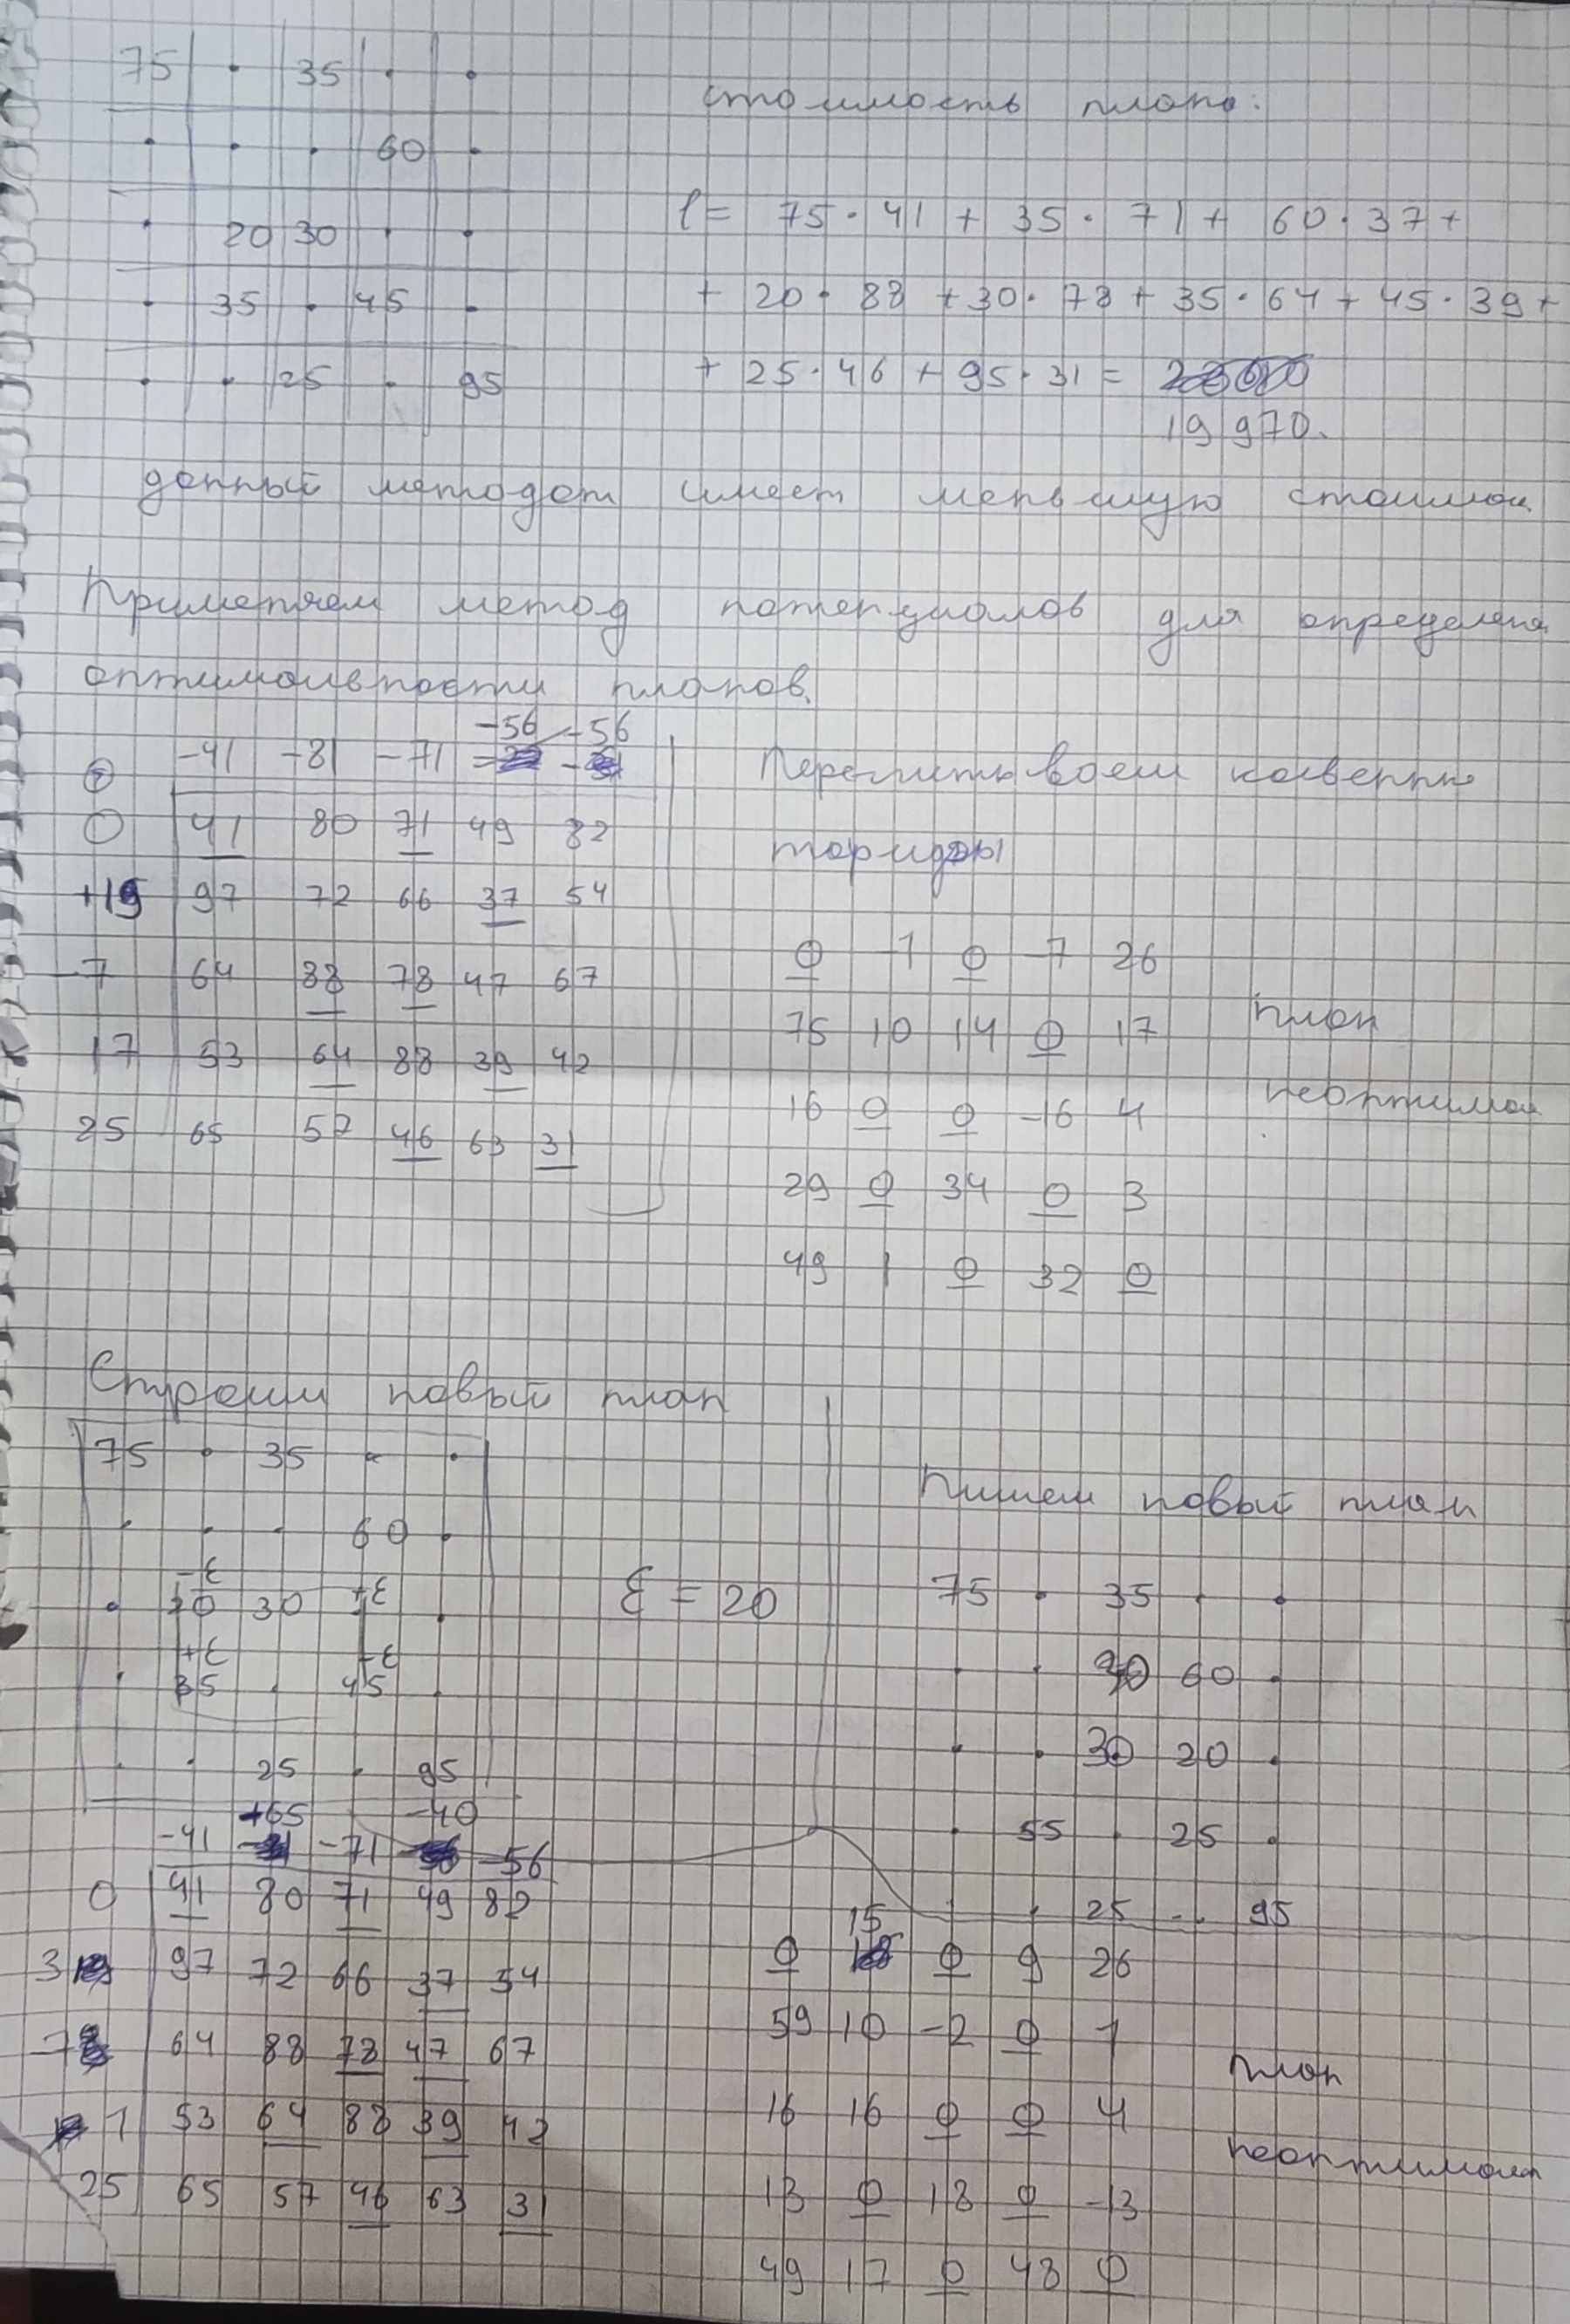 75 · 35 · ·
· · · 60 ·
· 20 30 · ·
· 35 · 45 ·
· · 25 · 95
стоимость плана:
l = 75 · 41 + 35 · 71 + 60 · 37 +
+ 20 · 88 + 30 · 78 + 35 · 64 + 45 · 39 +
+ 25 · 46 + 95 · 31 =
19 970.
данный методом имеет меньшую стоимос
Применяем метод потенциалов для определени
оптимальности планов.
-56 -56
+ -41 -81 -71
0 41 80 71 49 82
+19 97 72 66 37 54
-7 64 88 78 47 67
17 53 64 88 39 42
25 65 57 46 63 31
Пересчитываем коэффици
0 -1 0 -7 26
75 10 14 0 17
16 0 0 -16 4
29 0 34 0 3
49 1 0 32 0
план
неоптимал
Строим новый план
75 · 35 · ·
· · · 60 ·
-ε
· 20 30 +ε ·
+ε -ε
· 35 · 45 ·
· · 25 · 95
ε = 20
Пишем новый план
75 · 35 · ·
· · 60 ·
· · 30 20 ·
· 55 · 25 ·
· · 25 · 95
+65 -40
-41 -71 -56
0 41 80 71 49 82
3 97 72 66 37 54
-7 64 88 78 47 67
1 53 64 88 39 42
25 65 57 46 63 31
15
0 0 9 26
59 10 -2 0 1
16 16 0 0 4
13 0 18 0 -13
49 17 0 48 0
план
неоптимал